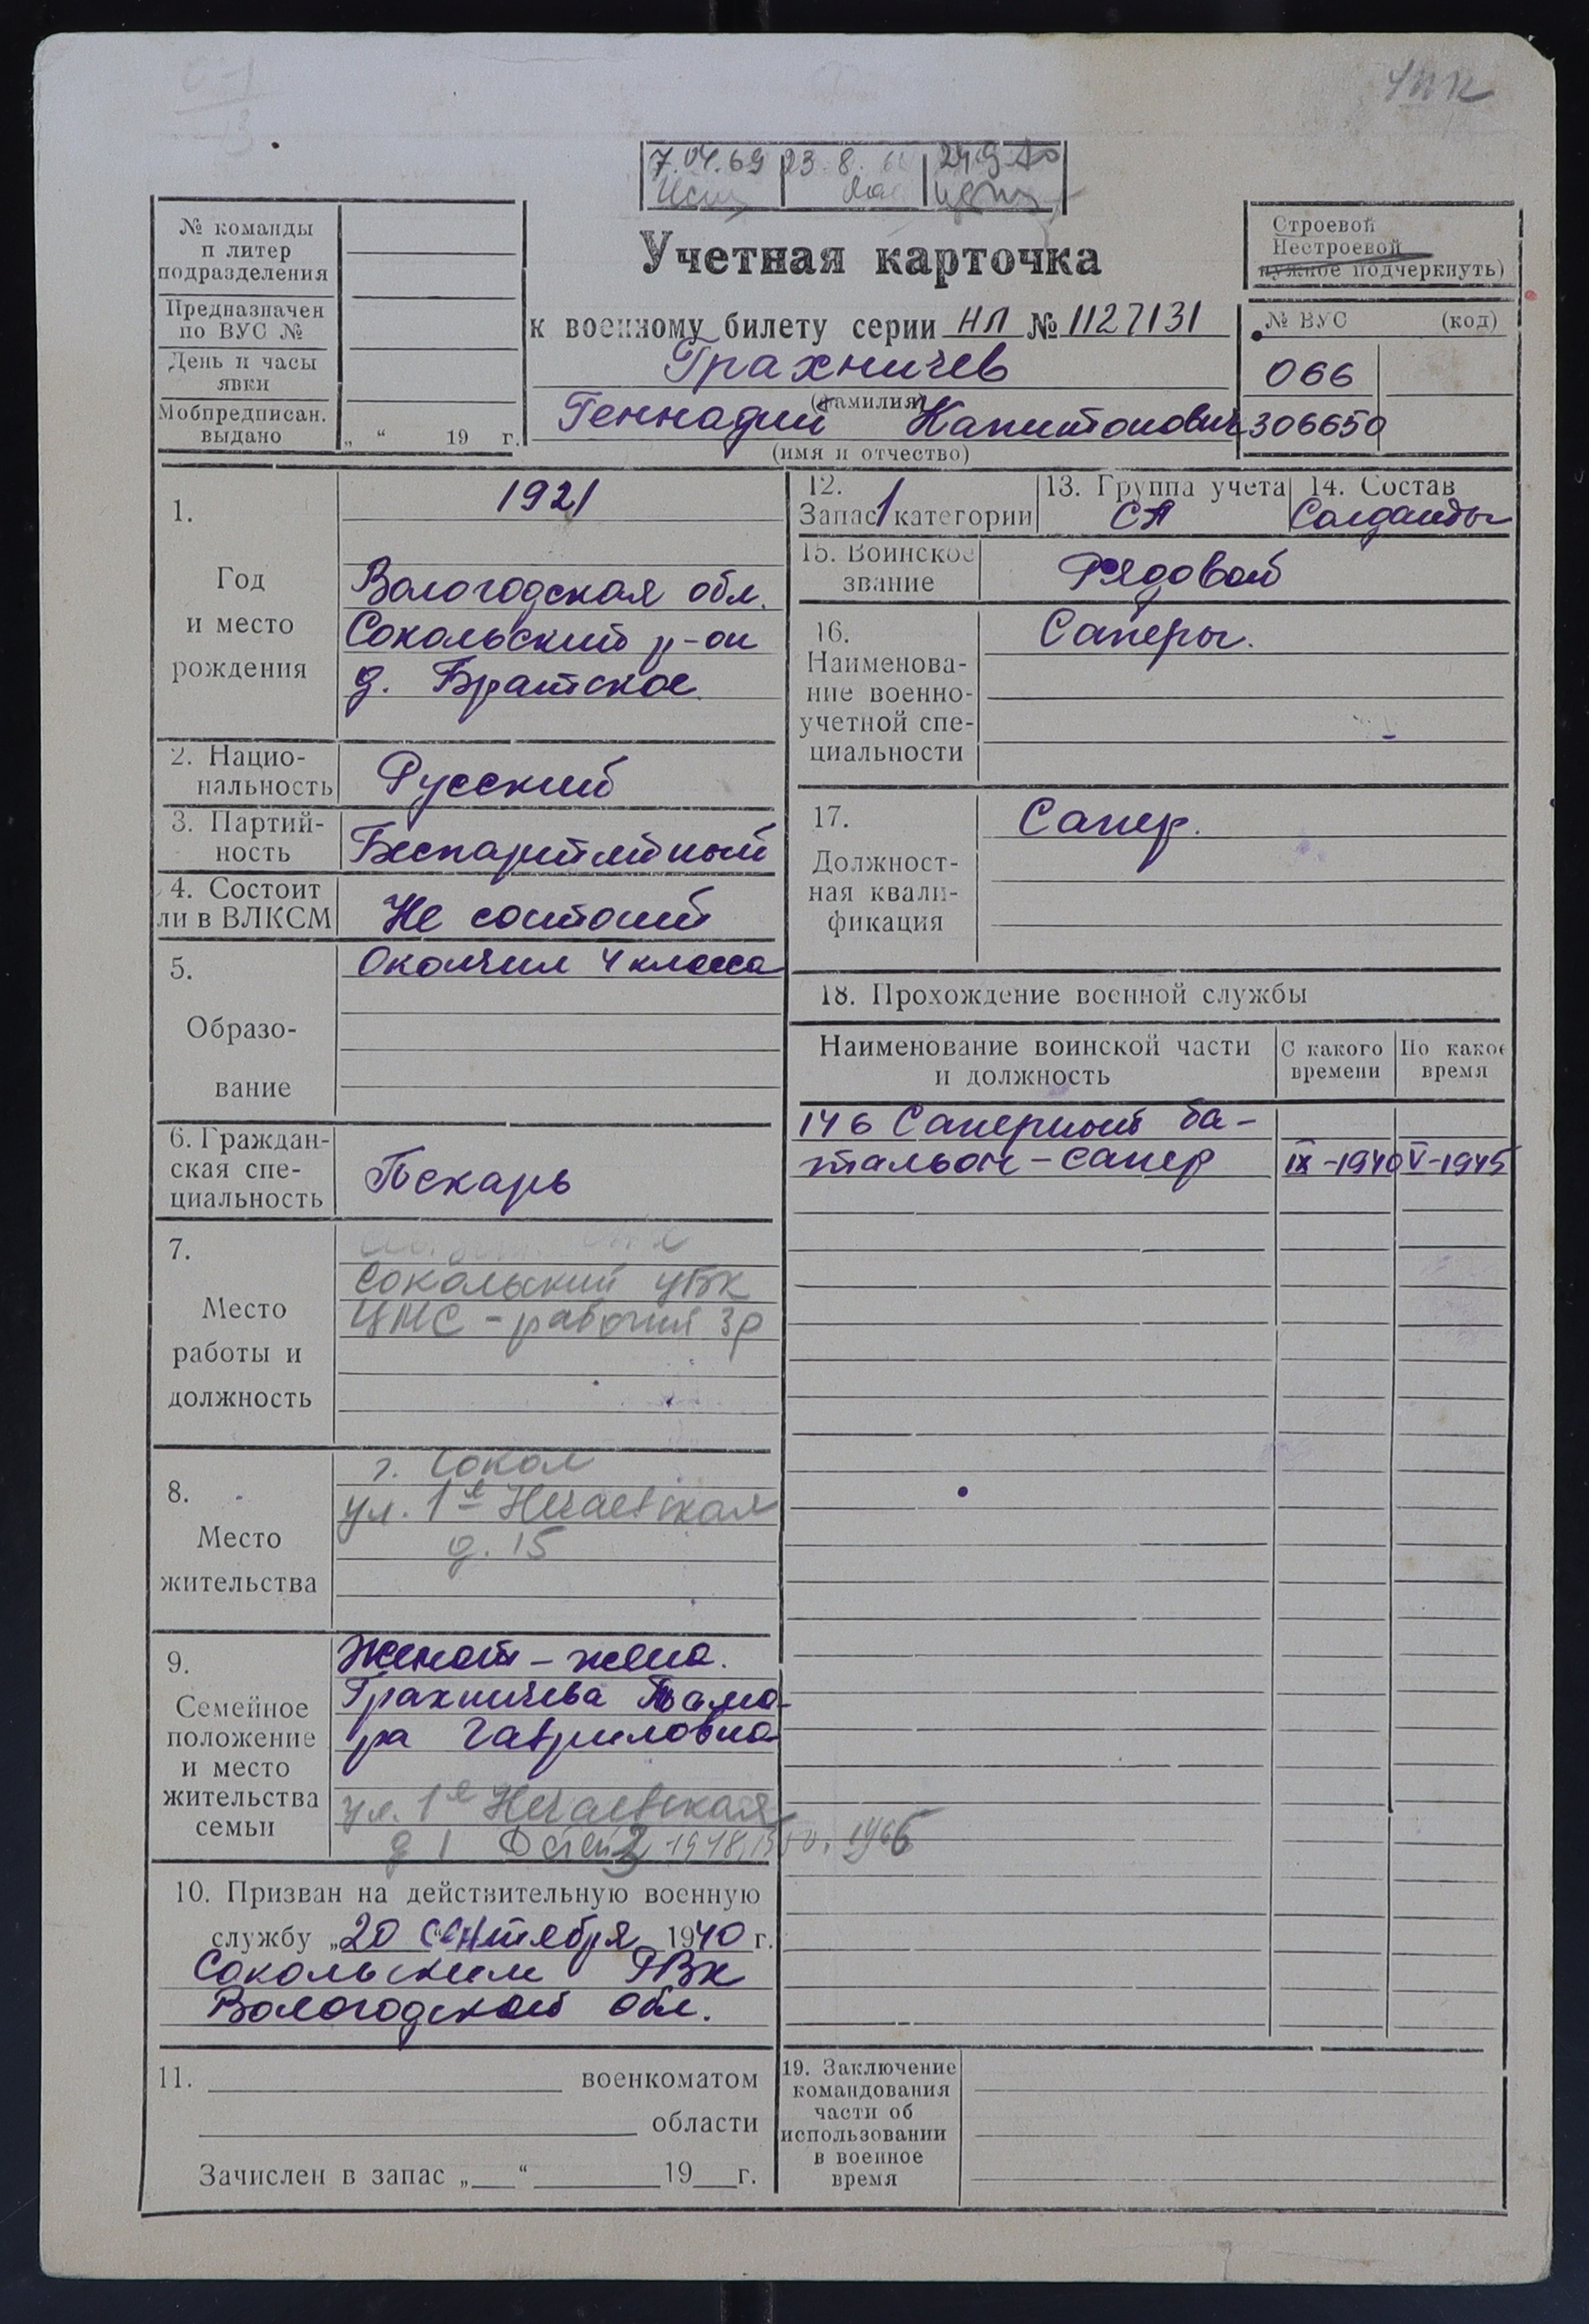 7.04.69 23.8.
Учетная карточка
к военному билету серии НЛ № 1127131
Грахничев
(фамилия)
Геннадий Капитонович
(имя и отчество)
№ команды
и литер
подразделения
Предназначен
по ВУС №
День и часы
явки
Мобпредписан.
выдано
„ “ 19 г.
Строевой
Нестроевой
нужное подчеркнуть)
№ ВУС (код)
066
306650
1.
Год
и место
рождения
1921
Вологодская обл.
Сокольский р-он
д. Братское.
2. Нацио-
нальность
Русский
3. Партий-
ность
Беспартийный
4. Состоит
ли в ВЛКСМ
Не состоит
5.
Образо-
вание
Окончил 4 класса
6. Граждан-
ская спе-
циальность
Пекарь
7.
Место
работы и
должность
Сокольский ЦБК
рабочий 3р
8.
Место
жительства
г. Сокол
ул. 1я Нечаевская
д. 15
9.
Семейное
положение
и место
жительства
семьи
Женат – жена.
Грахничева Тама-
ра Гавриловна
ул. 1я Нечаевская
д 1
10. Призван на действительную военную
службу „20 сентября 1940 г.
Сокольским РВК
Вологодской обл.
11. военкоматом
области
Зачислен в запас „ “ 19 г.
12.
Запас 1 категории
13. Группа учета
СА
14. Состав
Солдаты
15. Воинское
звание
Рядовой
16.
Наименова-
ние военно-
учетной спе-
циальности
Саперы.
17.
Должност-
ная квали-
фикация
Сапер.
18. Прохождение военной службы
Наименование воинской части
и должность
С какого
времени
По какое
время
146 Саперный ба-
тальон – сапер IX-1940 V-1945
19. Заключение
командования
части об
использовании
в военное
время